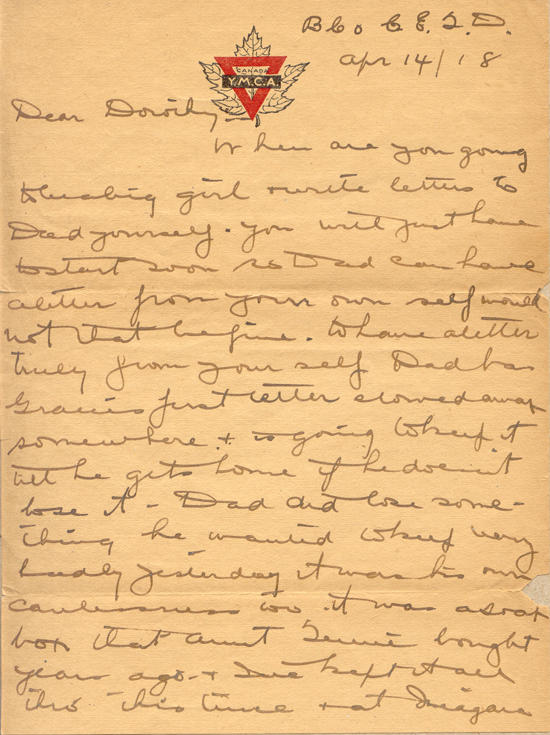 B Co C.E.T.D.
Apr 14/18
CANADA
Y.M.C.A.
Dear Dorothy —
When are you going
to be a big girl & write letters to
Dad yourself. You will just have
to start soon so Dad can have
a letter from your own self would
not that be fine. to have a letter
truly from your self Dad has
Gracie's first letter stowed away
somewhere & is going to keep it
till he gets home if he doesn't
lose it - Dad did lose some-
thing he wanted to keep very
badly yesterday it was his own
carelessness too it was a soap
box that aunt bought
years ago - & I've kept it all
thro this time & at Niagara